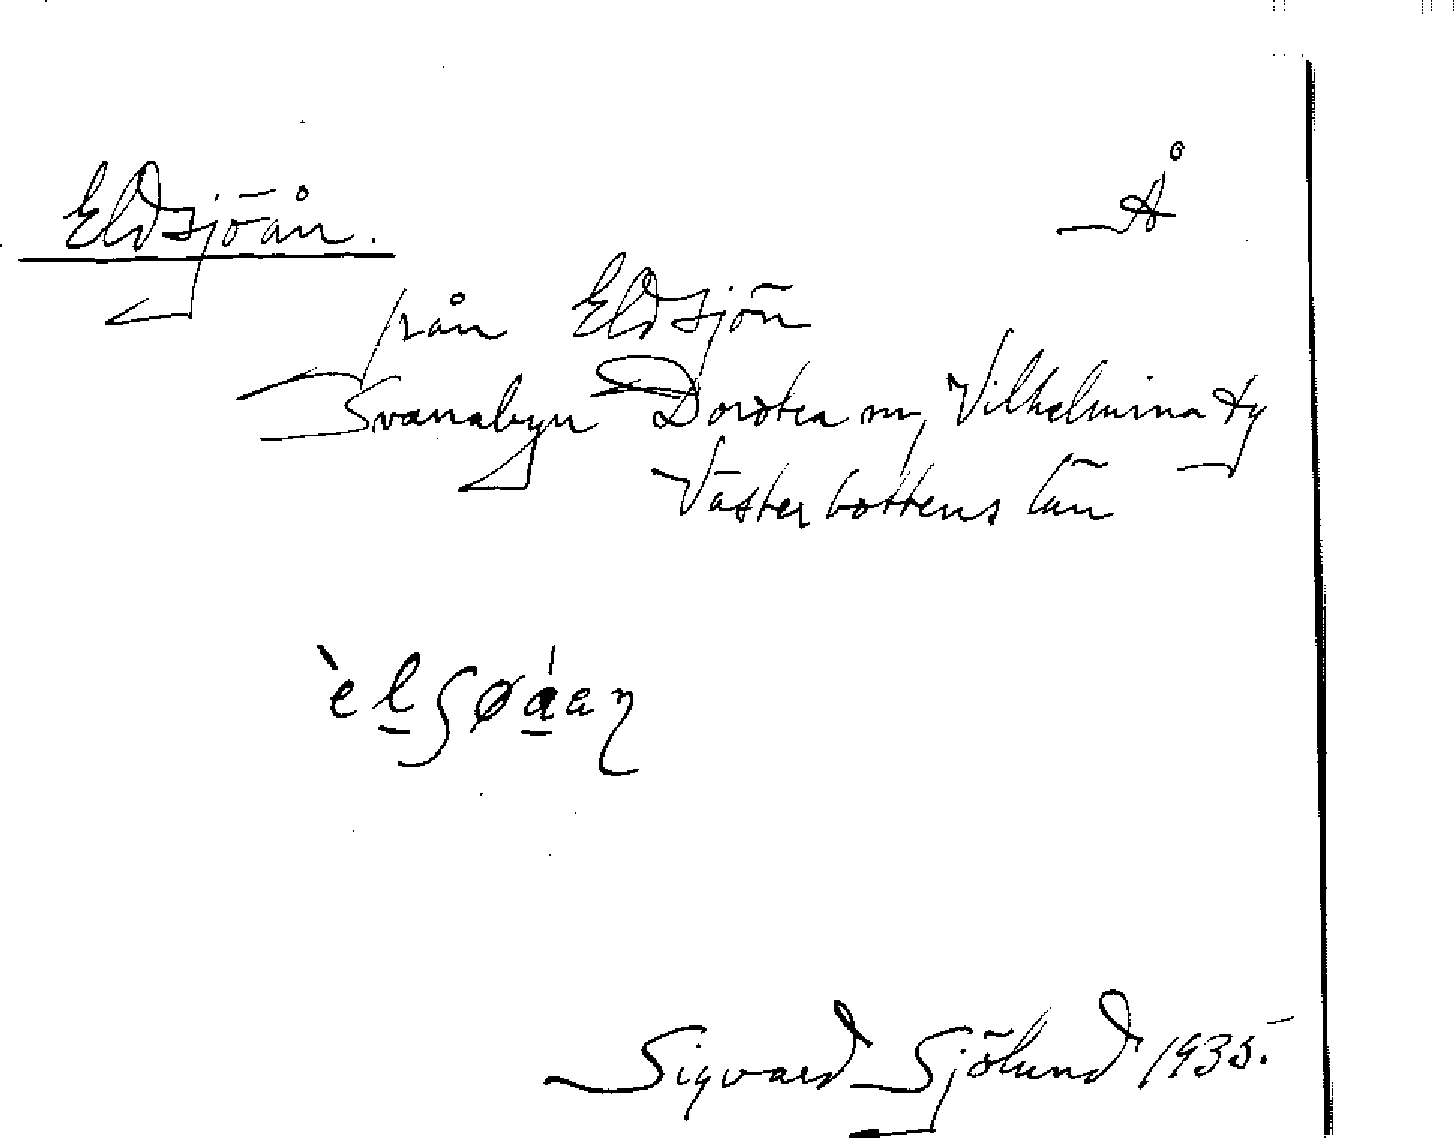 Eldsjöån. Å
från Eldsjön
Svanabyn Dorotea sn, Vilhelmina tg
Västerbottens län
Sigvard Sjölund 1935.